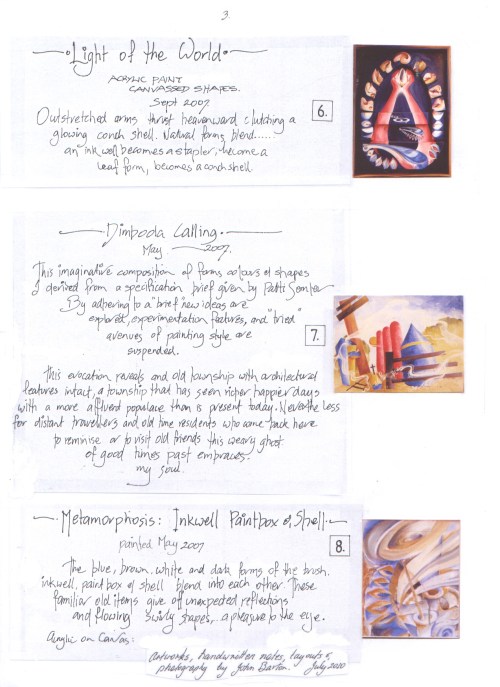 3
Light of the World
ACRYLIC PAINT
CANVASSED SHAPES.
Sept 2007
Outstretched arms thrust heavenward clutching a
glowing conch shell. Natural forms blend.....
an ink well becomes a stapler, become a
leaf form, becomes a conch shell
6.
Dimboola Calling
May 2007.
This imaginative composition of forms colours & shapes
I derived from a specification brief given by Patti
By adhering to a "brief" new ideas are
explored, experimentation features, and "tried"
avenues of painting style are
suspended.
7.
this evocation reveals and old township with architectural
features intact, a township that has seen richer happier days
with a more affluent populace than is present today. Never the less
for distant travellers and old time residents who come back here
to reminise or to visit old friends this weary ghost
of good times past embraces
my soul.
Metamorphosis: Inkwell Paintbox & Shell
painted May 2007
8.
The blue, brown. white and dark forms of the brush.
inkwell, paint box & shell blend into each other. These
familiar old items give off unexpected reflections
and flowing swirly shapes, a pleasure to the eye.
Acrylic on Canvas:
Artworks, handwritten notes, layouts &
photography by John Barton. July 2010